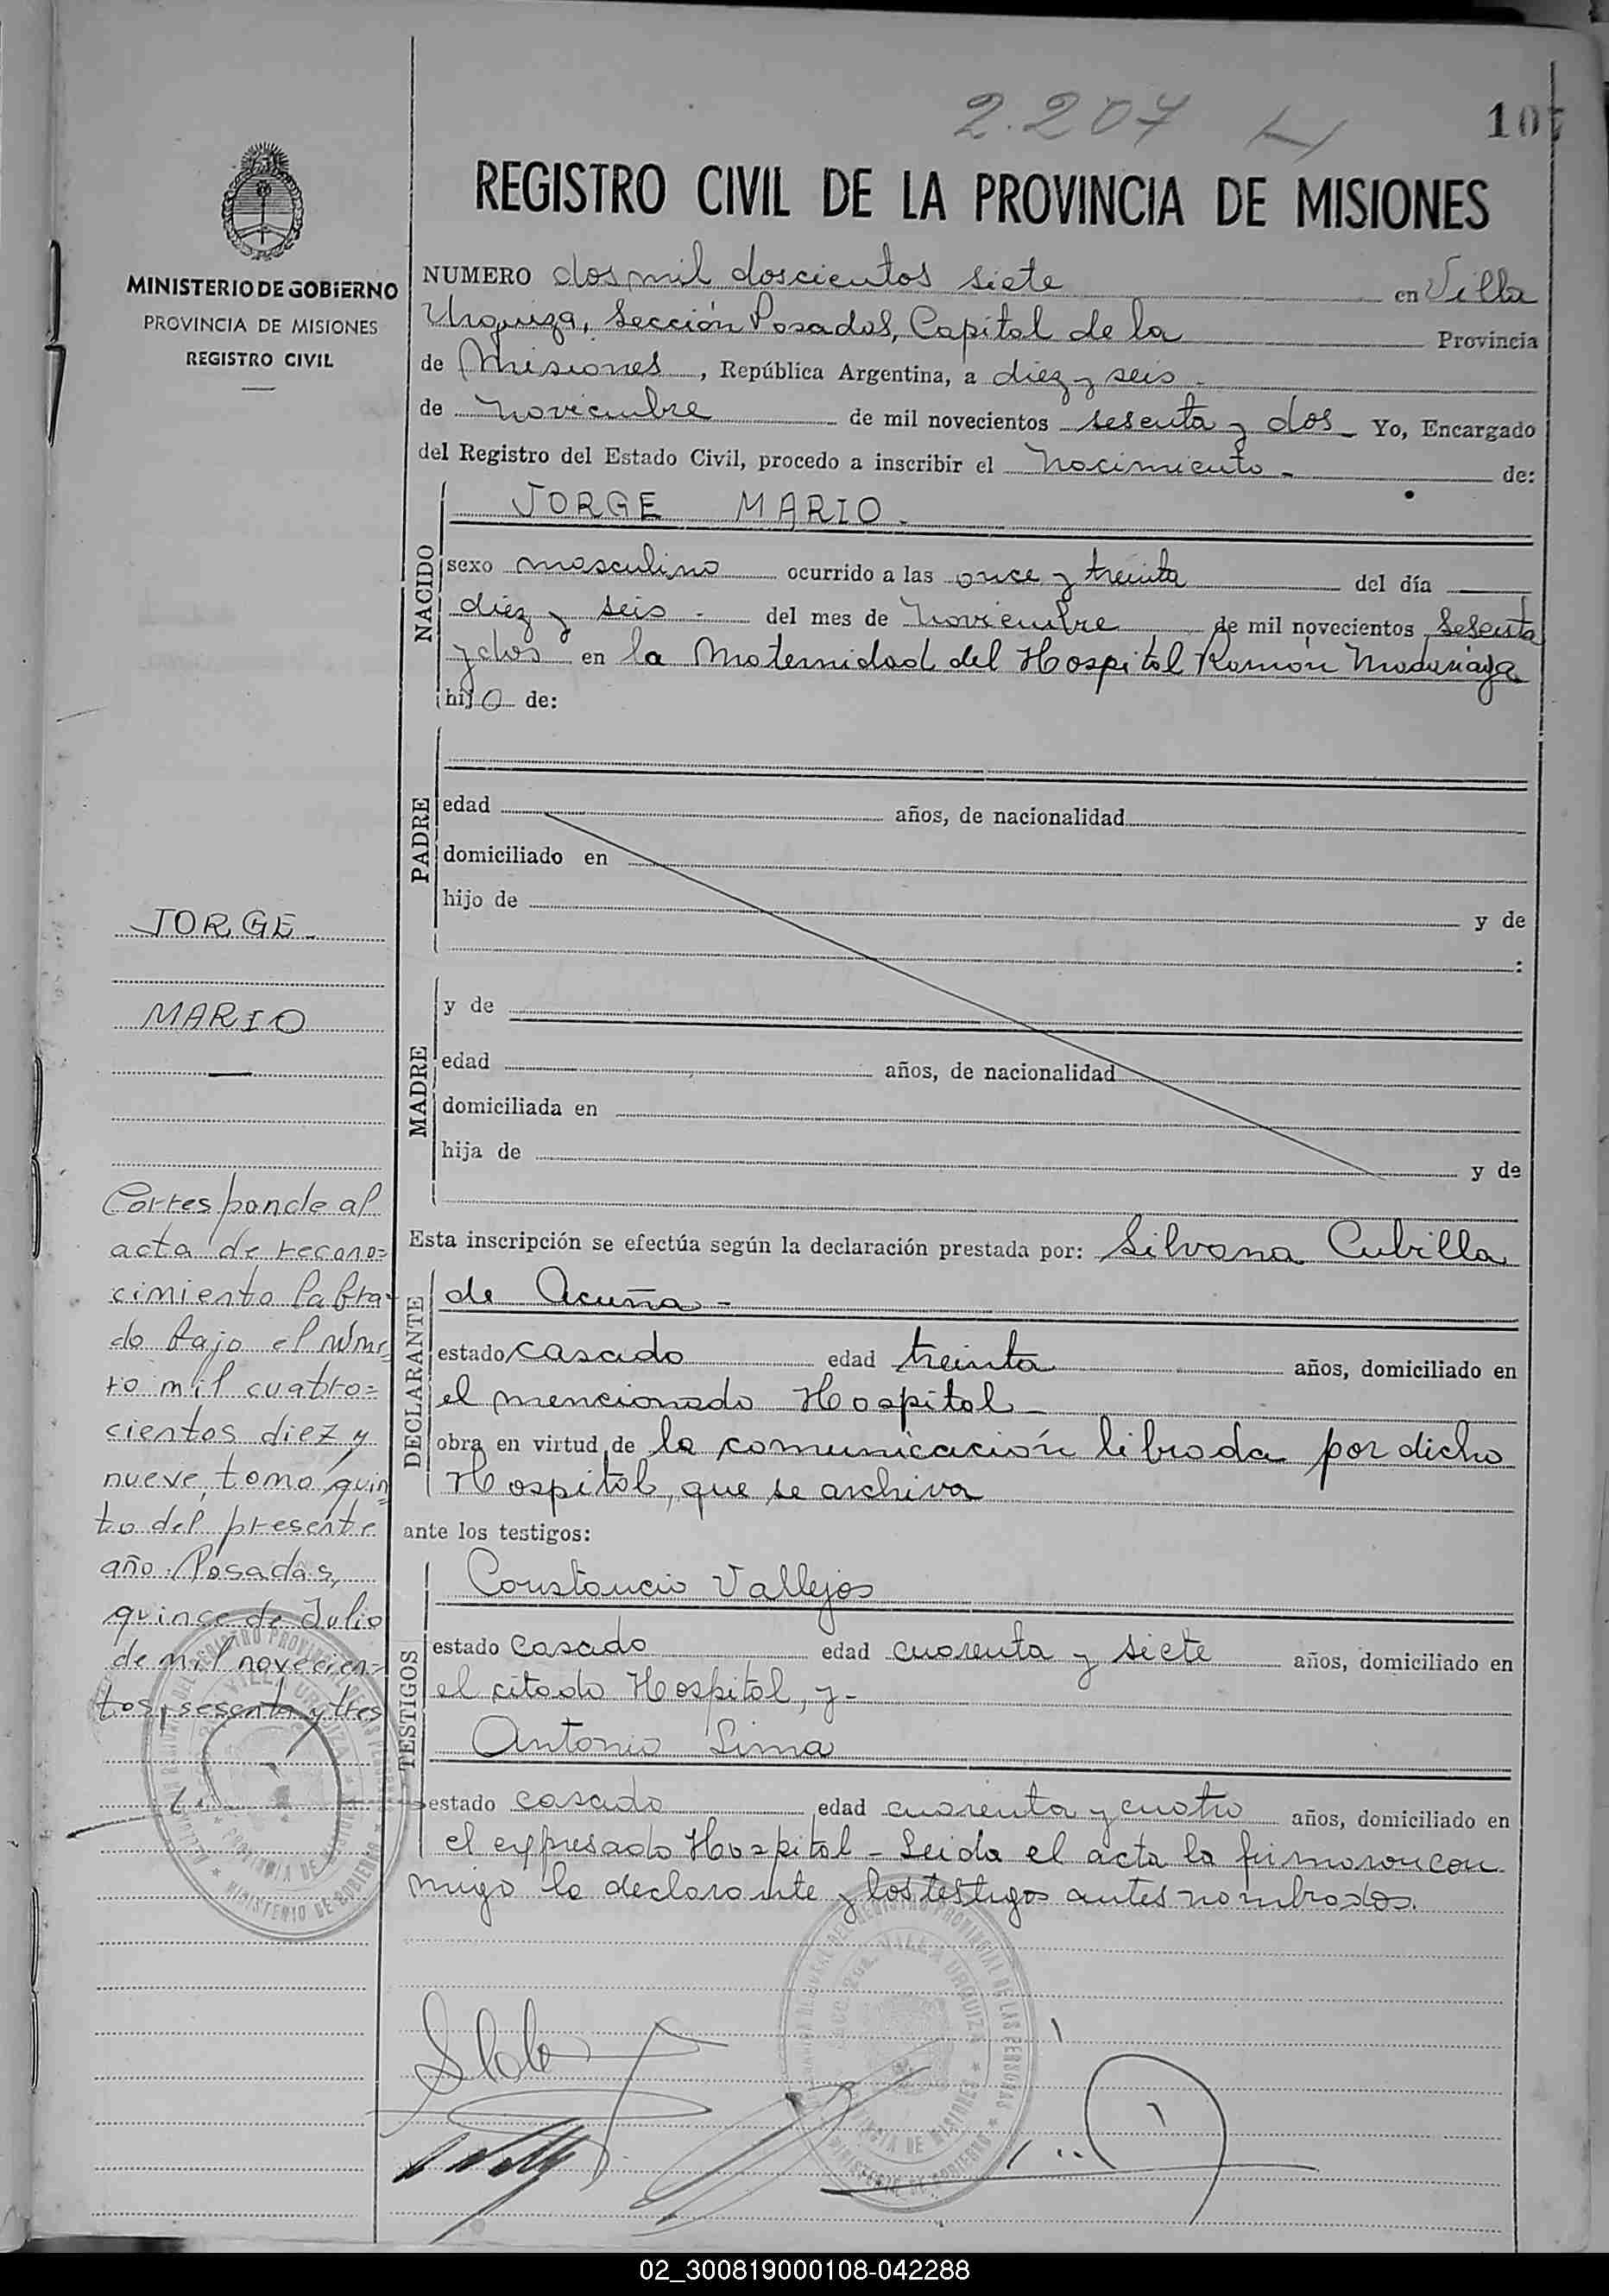 2.207
107
REGISTRO CIVIL DE LA PROVINCIA DE MISIONES
MINISTERIO DE GOBIERNO
PROVINCIA DE MISIONES
REGISTRO CIVIL
NUMERO dos mil doscientos siete en Villa
Urquiza, Sección Posadas, Capital de la Provincia
de Misiones, República Argentina, a diez y seis
de noviembre de mil novecientos sesenta y dos Yo, Encargado
del Registro del Estado Civil, procedo a inscribir el nacimiento - de:
NACIDO
JORGE MARIO.
sexo masculino ocurrido a las once y treinta del día
diez y seis - del mes de noviembre de mil novecientos sesenta
y dos en la Maternidad del Hospital Ramón Madariaga
hijo de:
PADRE
edad años, de nacionalidad
domiciliado en
hijo de y de
:
MADRE
y de
edad años, de nacionalidad
domiciliada en
hija de y de
Esta inscripción se efectúa según la declaración prestada por: Silvana Cubilla
DECLARANTE
de Acuña -
estado casado edad treinta años, domiciliado en
el mencionado Hospital -
obra en virtud de la comunicación librada por dicho
Hospital, que se archiva
ante los testigos:
TESTIGOS
Constancio Vallejos
estado casado edad cuarenta y siete años, domiciliado en
el citado Hospital, y -
Antonio Lima
estado casado edad cuarenta y cuatro años, domiciliado en
el expresado Hospital - Leida el acta la firmaron con
migo la declarante y los testigos antes nombrados.
JORGE -
MARIO
Corresponde al
acta de recono=
cimiento labra-
do bajo el núme
ro mil cuatro=
cientos diez y
nueve, tomo quin
to del presente
año. Posadas,
quince de Julio
de mil novecien=
tos sesenta y tres
VILLA URQUIZA
PROVINCIA DE MISIONES
MINISTERIO DE GOBIERNO
REGISTRO PROVINCIAL DE LAS PERSONAS
VILLA URQUIZA
PROVINCIA DE MISIONES
MINISTERIO DE GOBIERNO
02_300819000108-042288